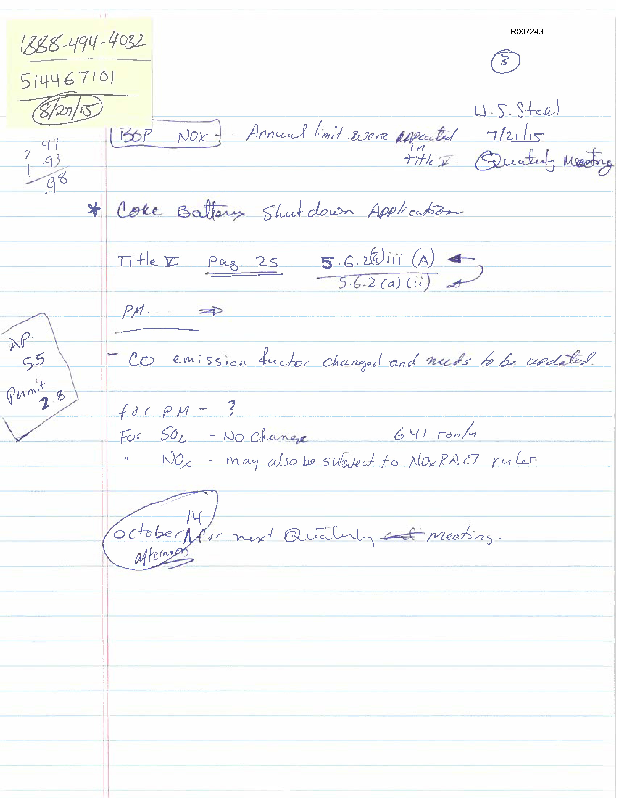 R007243
1888-494-4032
514467101
8/27/15
3
U.S. Steel
BOP NOx - Annual limit were repeated 7/21/15
in Title V Quaterly Meeting
.98
* Coke Battery Shutdown Application
Title V Pag 25 5.6.2 iii (A)
5.6.2 (a) (ii)
PM ⇒
AP.
55
Permit
28
- CO emission factor changed and needs to be updated.
for PM - ?
For SO2 - No Change 641 ton/
" NOx - may also be subject to NOx RACT rules
14
October for next Quaterly Meeting.
afternoon